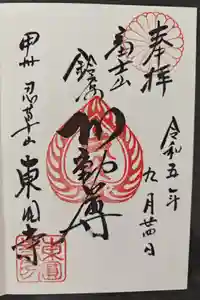 奉拝
令和五年
九月廿四日
富士山
不動尊
甲州 忍草山 東円寺
東圓